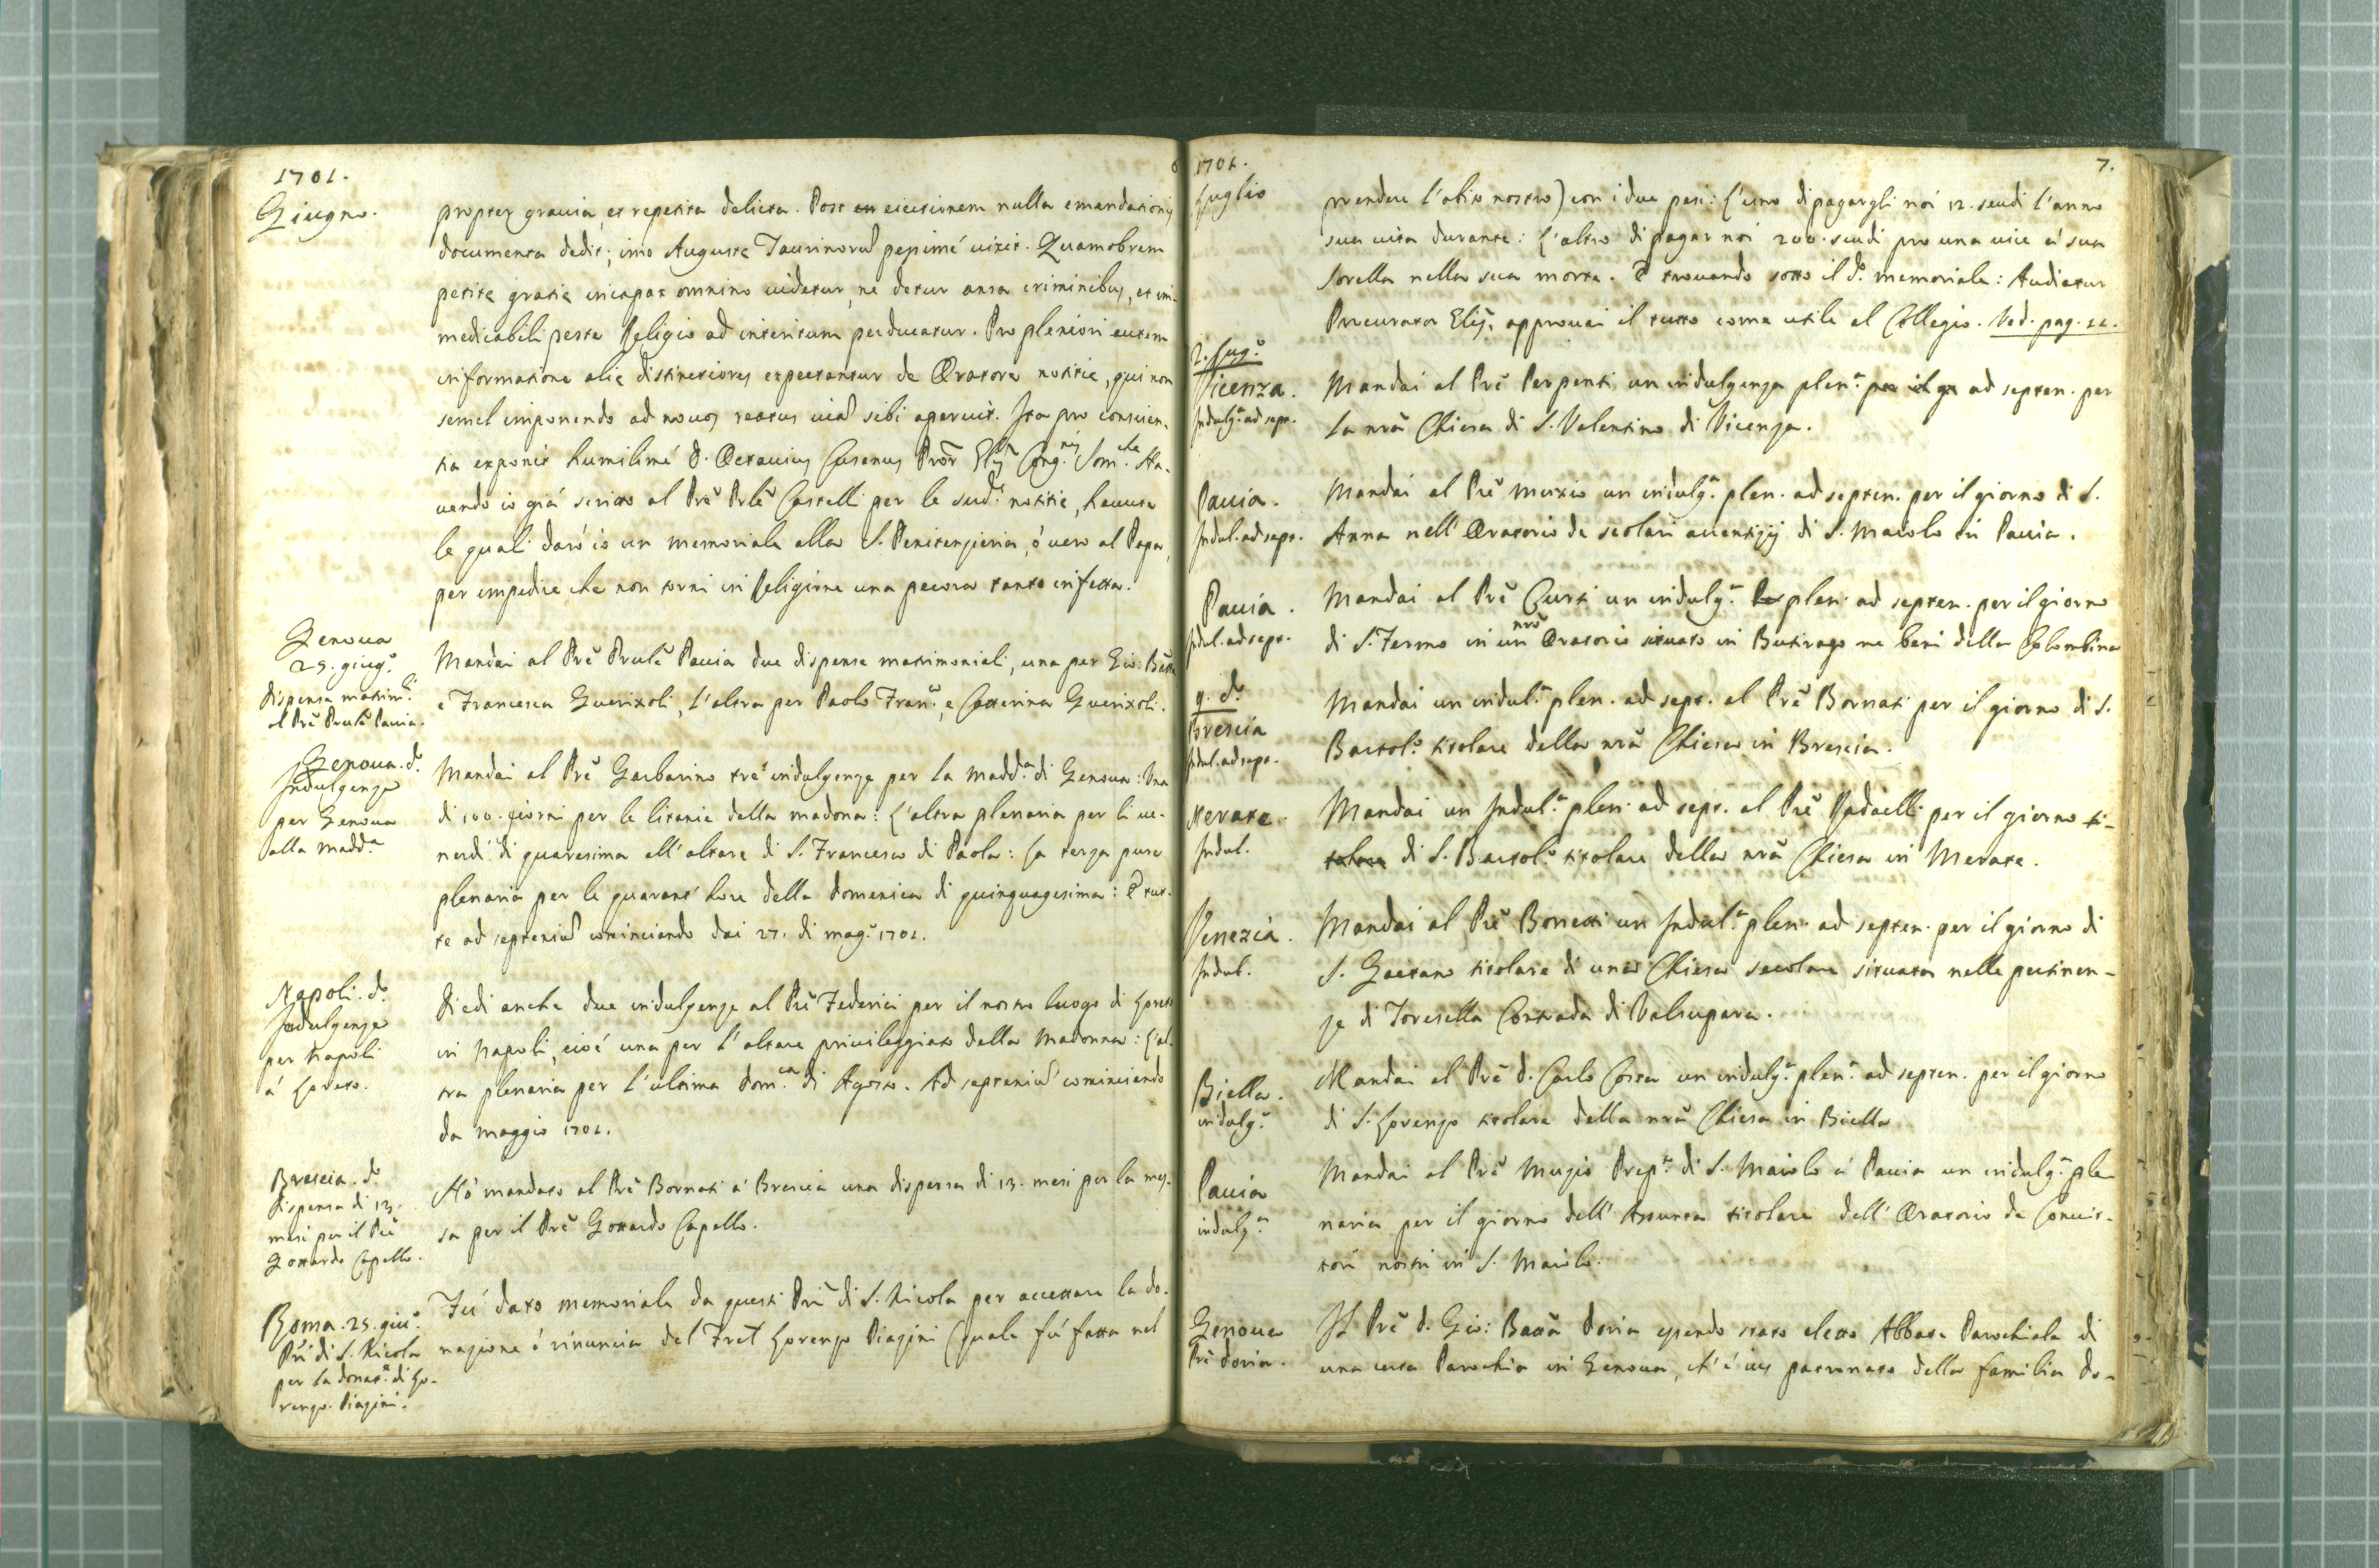 1701.
Giugno.
propter gravia, et repetita delicta. Post eiectionem nulla emendationis
documenta dedit; imo Augustę Taurinorũ pessimé vixit. Quamobrem
petitę gratię incapax omnino videtur, ne detur ansa criminibus, et im-
medicabili peste Religio ad interitum perducatur. Pro pleniori autem
informatione alię distinctiores expectantur de Oratore notitię, qui non
semel imponendo ad novos reatus viã sibi aperuit. Ita pro conscien-
tia exponit humilimé D. Octavius Cusanus Prõr Glis Cong.nis Som.chę. Ha-
vendo io giá scritto al Prẽ Prlẽ Castelli per le sud.e notitie, havute
le quali daró io un memoriale alla S. Penitenzieria, ó vero al Papa,
per impedire che non torni in Religione una pecora tanto infetta.
Genova
25. giug.o
dispensa matrim.li
al Prẽ Prulẽ Pavia.
Mandai al Prẽ Prulẽ Pavia due dispense matrimoniali, una per Gio: Batta
e Francesca Guerixoli, l'altra per Paolo Fran.co, e Catterina Guerixoli.
Genova. d.o
Indulgenze
per Genova
alla Madd.a
Mandai al Prẽ Garbarino tre indulgenze per la Madd.a di Genova: Una
di 100. giorni per le litanie della Madona: L'altra plenaria per li ve-
nerdí di quaresima all'altare di S. Francesco di Paola: La terza pure
plenaria per le quarant'hore della domenica di quinquagesima: E tut-
te ad septeniũ cominciando dai 27. di mag.o 1701.
Napoli. d.o
Indulgenze
per Napoli
á Loreto.
Diedi anche due indulgenze al Prẽ Federici per il nostro luogo di Loreto
in Napoli, cioé una per l'altare privileggiato della Madonna: L'al-
tra plenaria per l'ultima dom.ca di Agosto. Ad septeniũ cominciando
da Maggio 1701.
Brescia. d.o
dispensa di 13.
mesi per il Prẽ
Gottardo Capello.
Hó mandato al Prẽ Bornati á Brescia una dispensa di 13. mesi per la mes-
sa per il Prẽ Gottardo Capello.
Roma. 25. giu.o
Pri di S. Nicola
per la donat.e di Lo-
renzo Piazini.
Fú dato memoriale da questi Pri di S. Nicola per accettare la do-
nazione ó rinuncia del Fret Lorenzo Piazini (quale fú fatta nel
1701.
7.
Luglio
prendere l'abito nostro) con i due pesi: L'uno di pagargli noi 12. scudi l'anno
sua vita durante: L'altro di pagar noi 200. scudi pro una vice á sua
sorella nella sua morte. E trovando sotto il d.o memoriale: Audiatur
Procurator Glis. approvai il tutto come utile al Collegio. Ved. pag. 11.
2. Lug.o
Vicenza.
Indulg.a ad sept.
Mandai al Prẽ Perpenti un indulgenza plen.a ad septen. per
la nrã Chiesa di S. Valentino di Vicenza.
Pavia.
Indul. ad sept.
Mandai al Prẽ Mutio un indulg.a plen. ad septen. per il giorno di S.
Anna nell'Oratorio de scolari aventizij di S. Maiolo di Pavia.
Pavia.
Indul. ad sept.
Mandai al Prẽ Curti un indulg.a plen. ad septen. per il giorno
di S. Fermo in un nrõ Oratorio situato in Butirago ne beni della Colombina
9. d.o
Brescia
Indul. ad sept.
Mandai un indul.a plen. ad sept. al Prẽ Bornati per il giorno di S.
Bartol.o titolare della nrã Chiesa in Brescia.
Merate.
Indul.
Mandai un Indul.a plen. ad sept. al Prẽ Radaelli per il giorno ti-
tolare di S. Bartol.o titolare della nrã Chiesa in Merate.
Venezia.
Indul.
Mandai al Prẽ Bonetti un Indul.a plen. ad septen. per il giorno di
S. Gaetano titolare di una Chiesa secolare situata nelle pertinen-
ze di Toresella Contrada di Valsupara.
Biella.
indulg.a
Mandai al Prẽ D. Carlo Costa un indulg.a plen.a ad septen. per il giorno
di S. Lorenzo titolare della nrã Chiesa in Biella
Pavia
indulg.a
Mandai al Prẽ Muzio Prep.o di S. Maiolo á Pavia un indulg.a ple
naria per il giorno dell'Assunta titolare dell'Oratorio de Convit-
tori nostri in S. Maiolo.
Genova
Prẽ Doria.
Il Prẽ D. Gio: Battã Doria essendo stato eletto Abbate Parochiale di
una certa Parochia in Genova, ch'é ius patronato della familia Do-